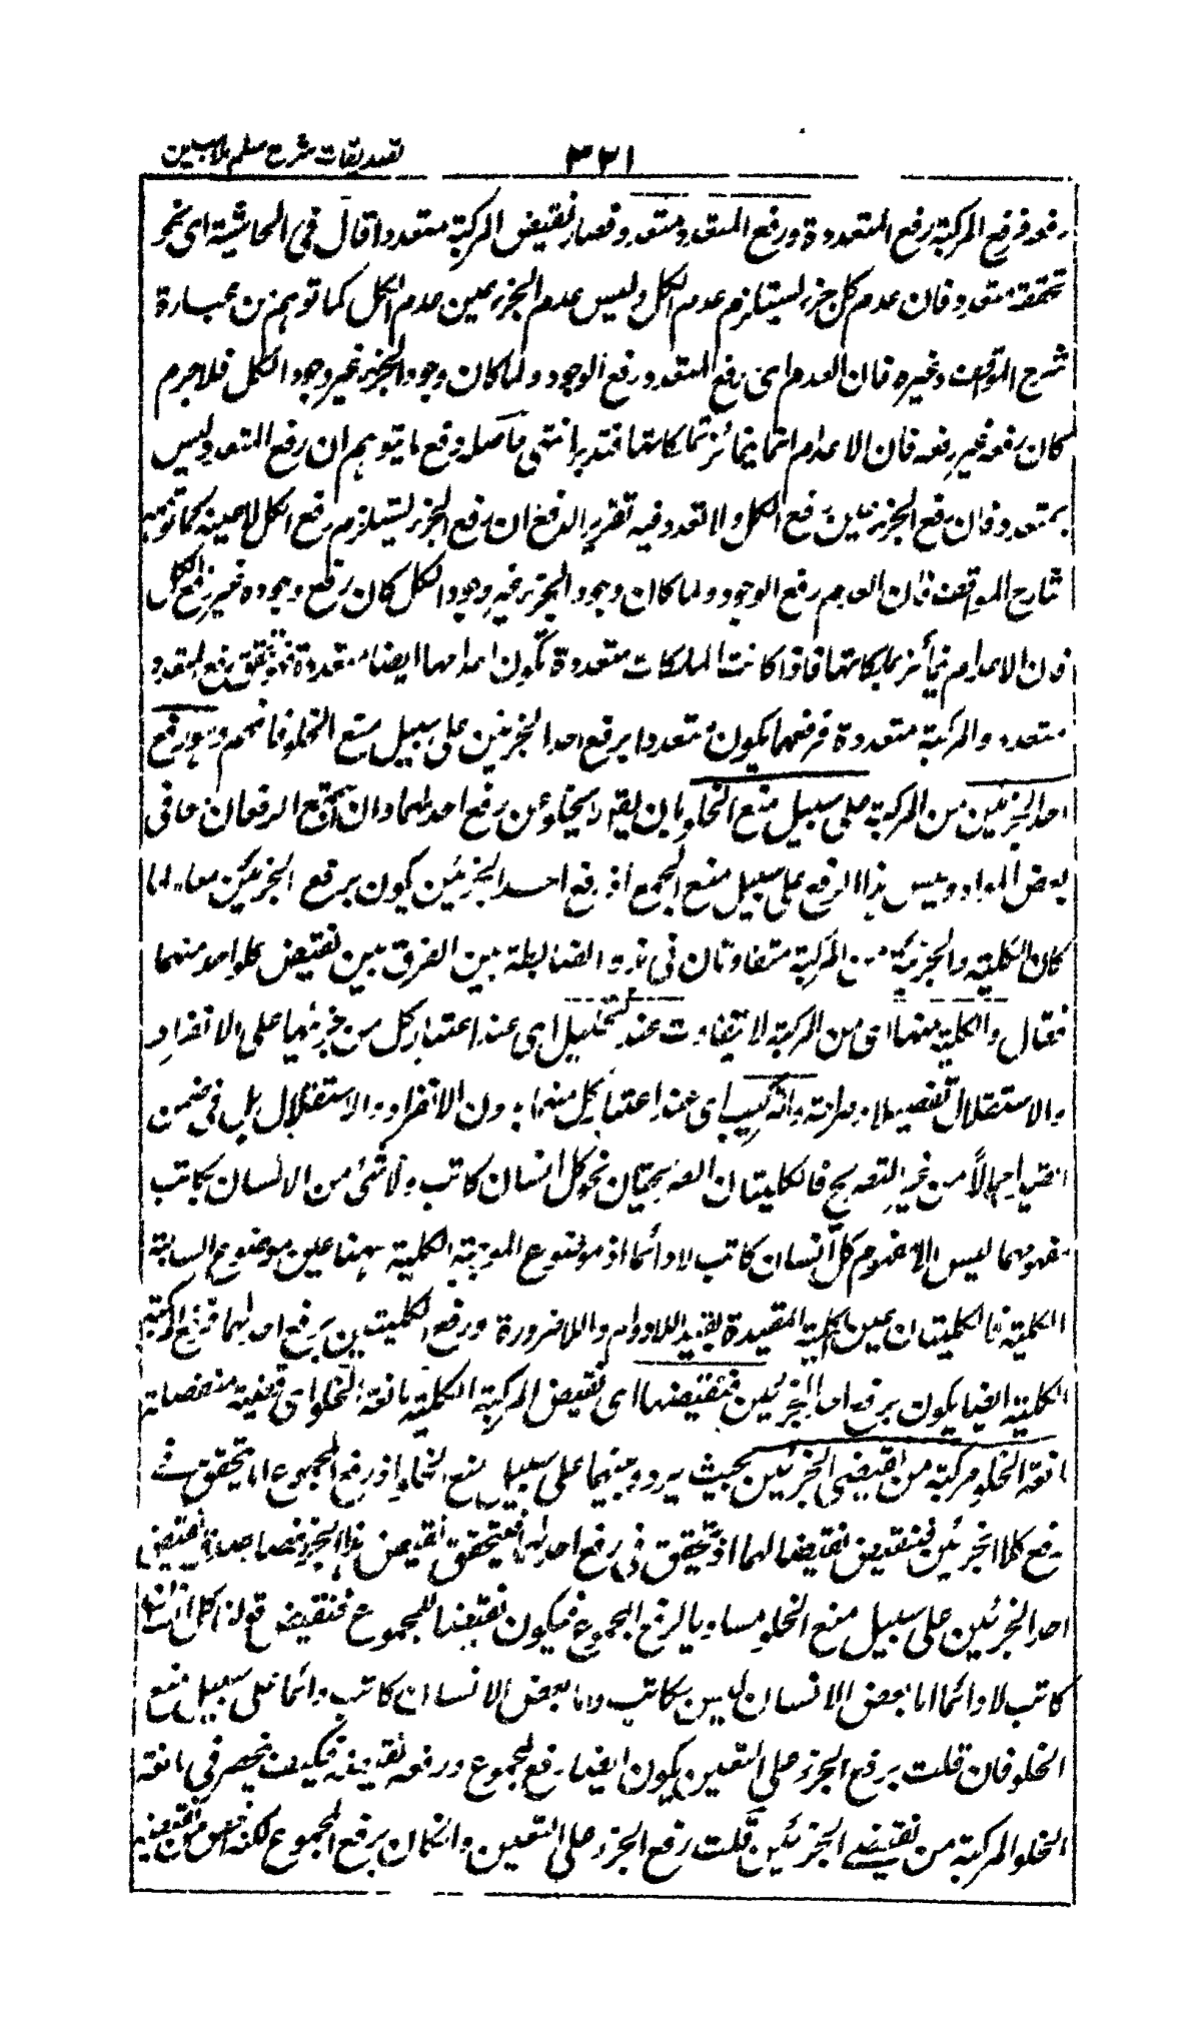 تصدیقات شرح سلم ملامبین
۳۲۱
رفعه فرفع المركبة رفع المتعددة ورفع المتعدد متعدد فصار نقيض المركبة متعددا قال في الحاشية اى نحو
تحققه متعدد فان عدم كل جزء يستلزم عدم الكل وليس عدم الجزء عين عدم الكل كما توهم من عبارة
شرح المواقف وغيره فان العدم اى رفع المتعدد رفع الوجود ولما كان وجود الجزء غير وجود الكل فلا جرم
كان رفعه غير رفعه فان الاعدام انما يتمائز بملكاتها فتدبر انتهى حاصله دفع ما يتوهم ان رفع المتعدد ليس
بمتعدد فان رفع الجزء عين رفع الكل ولا تعدد فيه تقرير الدفع ان رفع الجزء يستلزم رفع الكل لا عينه كما توهم
شارح المواقف فان العدم رفع الوجود ولما كان وجود الجزء غير وجود الكل كان رفع وجوده غير رفع الكل
فان الاعدام تمائز بملكاتها فاذا كانت الملكات متعددة تكون اعدامها ايضا متعددة فتحقق رفع المتعدد
متعدد والمركبة متعددة فرفعها يكون متعددا برفع احد الجزئين على سبيل منع الخلو فافهم وهو رفع
احد الجزئين من المركبة على سبيل منع الخلو بان يقع ولا يخلو عن رفع احدهما وان اجتمع الرفعان معا في
بعض المواد وليس هذا الرفع على سبيل منع الجمع اذ رفع احد الجزئين يكون برفع الجزئين معا ولما
كان الكلية والجزئية من المركبة متفاوتان في هذه الضابطة بين الفرق بين نقيض كل واحد منهما
فقال والكلية منها اى من المركبة لا يتفاوت عند التحليل اى عند اعتبار كل من جزئيها على الانفراد
والاستقلال تفصيلا وصراحة والتركيب اى عند اعتبار كل منهما بدون الانفراد والاستقلال بل في ضمن
القضية اجمالاً من غير التصريح فالكليتان الصريحتان نحو كل انسان كاتب ولا شئ من الانسان بكاتب
مفهومهما ليس الا مفهوم كل انسان كاتب لا دائما اذ موضوع الموجبة الكلية بهنا عين موضوع السالبة
الكلية فالكليتان عين الكلية المقيدة بقيد اللادوام واللاضرورة ورفع الكليتين برفع احدهما فرفع المركبة
الكلية ايضا يكون برفع احد الجزئين فنقيضها اى نقيض المركبة الكلية مانعة الخلو اى قضية منفصلة
مانعة الخلو مركبة من نقيضى الجزئين بحيث يردد بينهما على سبيل منع الخلو اذ رفع المجموع اما يتحقق في
رفع كلا الجزئين فنقيض نقيضا لهما او يتحقق في رفع احدهما فيتحقق نقيض هذا الجزء فصار صدق نقيض
احد الجزئين على سبيل منع الخلو مساويا لرفع المجموع فيكون نقيضا للمجموع فنقيض قولنا كل انسان
كاتب لا دائما اما بعض الانسان ليس بكاتب واما بعض الانسان كاتب دائما على سبيل منع
الخلو فان قلت برفع الجزء على التعيين يكون ايضا رفع المجموع ورفعه نقيضه فكيف ينحصر في مانعة
الخلو المركبة من نقيضى الجزئين قلت رفع الجزء على التعيين وانكان برفع المجموع لكنه اخص من نقيضه